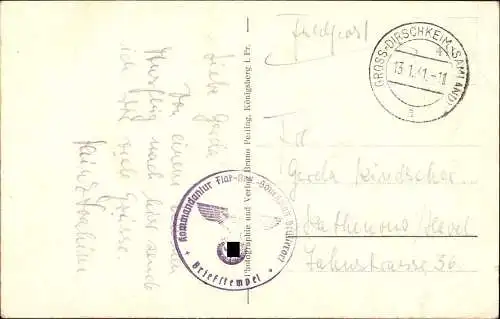 Feldpost
GROSS-DIRSCHKEIM (SAMLAND)
13.1.41.-11
a
Liebe Gerda
Von einem
Ausflug nach hier sende
ich Dir viele Grüsse.
Photographie und Verlag Bruno Perling, Königsberg i. Pr.
Kommandantur Flak-Art.-Schule
Briefstempel
Frl.
Gerda Kindscher
Rathenow/Havel
Jahnstrasse 36